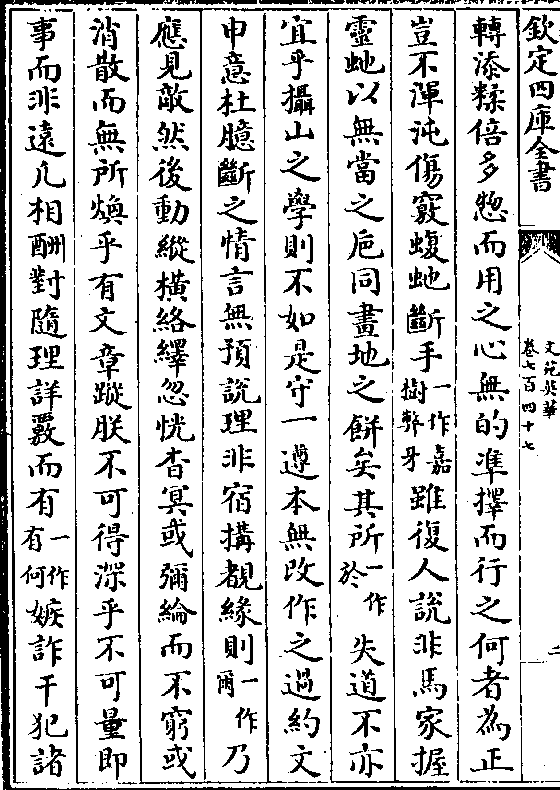 欽定四庫全書
文苑英華
卷七百四十七
轉添糅倍多愗而用之心無的準擇而行之何者為正
豈不渾沌傷竅蝮虵斷手一作嘉樹幹牙雖復人說非馬家握
靈虵以無當之巵同畫地之餅矣其所一作於失道不亦
宜乎攝山之學則不如是守一遵本無改作之過約文
申意杜臆斷之情言無預說理非宿搆覩緣則一作爾乃
應見敵然後動縱横絡繹忽恍杳冥或彌綸而不窮或
消散而無所煥乎有文章蹤朕不可得深乎不可量即
事而非遠凡相酬對隨理詳覈而有一作有何嫉詐干犯諸